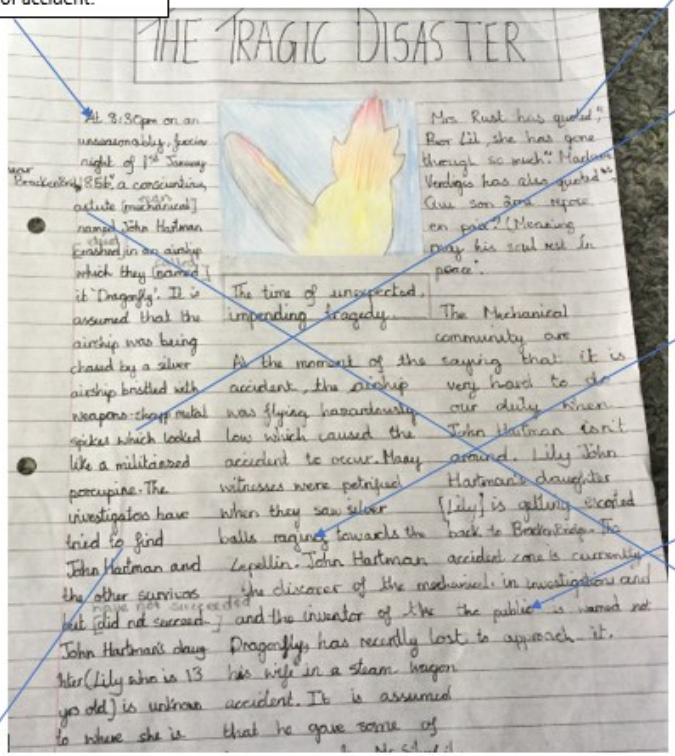 of accident.
THE TRAGIC DISASTER
At 8:30pm on an
unseasonably,
night of 1st January
year
BrackenBridge 1856, a conscientious,
man
astute [mechanical]
named John Hartman
crashed in an airship
called
which they [named]
it 'Dragonfly'. It is
assumed that the
airship was being
chased by a silver
airship bristled with
weapons- sharp metal
spikes which looked
like a militarised
porcupine. The
investigators have
tried to find
John Hartman and
the other survivors
have not succeeded
but [did not succeed.]
John Hartman's daug
hter (Lily who is 13
yrs old) is unknown
to where she is
The time of unexpected,
impending tragedy.
At the moment of the
accident, the airship
was flying hazardously
low which caused the
accident to occur. Many
witnesses were petrified
when they saw silver
balls raging towards the
Zepellin. John Hartman
the discover of the mechanical.
and the inventor of the
Dragonfly, has recently lost
his wife in a steam wagon
accident. It is assumed
that he gave some of
Mrs. Rust has quoted,"
Poor Lil, she has gone
through so much". Madame
Verdigris has also quoted "
Que son âme repose
en paix". (Meaning
may his soul rest in
peace".
The Mechanical
community are
saying that it is
very hard to do
our duty when
John Hartman isn't
around. Lily John
Hartman's daughter
[Lily] is getting escorted
back to BrackenBridge. The
accident zone is currently
in investigations and
the public is warned not
to approach it.